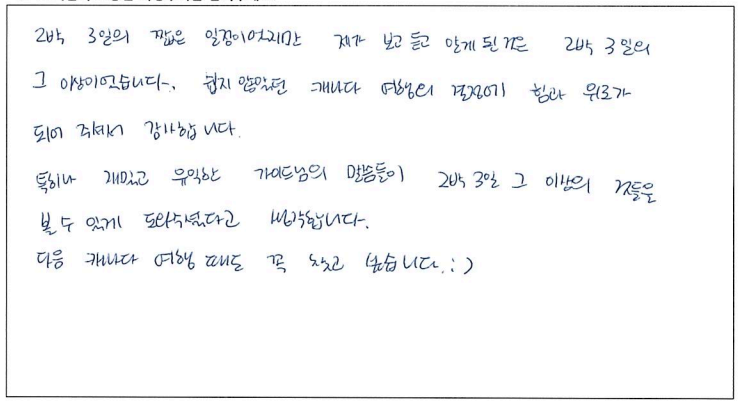 2박 3일의 짧은 일정이었지만 제가 보고 듣고 알게 된 것은 2박 3일의
그 이상이었습니다. 쉽지 않았던 캐나다 여행의 결정에 힘과 위로가
되어 주셔서 감사합니다.
특히나 재밌고 유익한 가이드님의 말씀들이 2박 3일 그 이상의 것들을
볼 수 있게 도와주셨다고 생각합니다.
다음 캐나다 여행 때도 꼭 찾고 싶습니다. :)